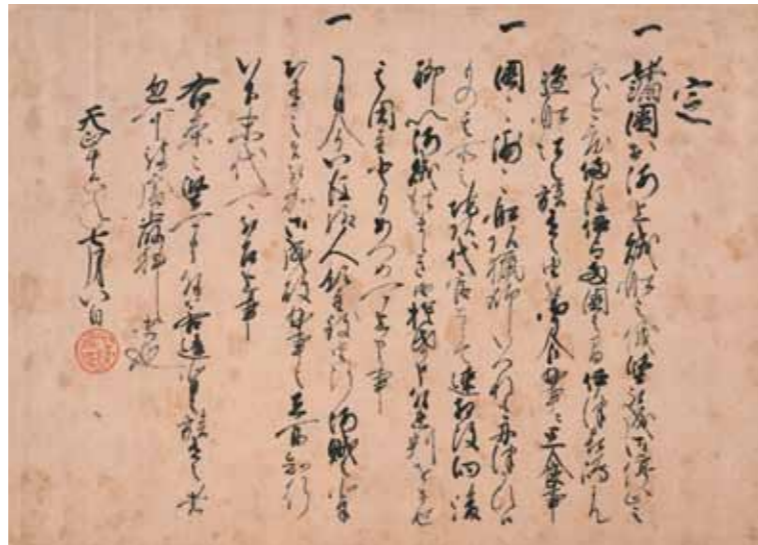 定
一 諸國於海上賊船之儀堅被成御停止之
處今度備後伊与両國之間伊津喜嶋にて
盗船仕之族在之由被聞食曲事ニ思食事
一 國々浦々船頭猟師いつれも舟つかひ候
もの其所之地頭代官として速相改向後
聊以海賊仕ましき由誓紙申付連判をさせ
其國主とりあつめ可上申事
一 自今以後給人領主致由断海賊之輩
於在之者被加御成敗曲事之在所知行
以下末代可被召上事
右条々堅可申付若違背之族在之者
忽可被處罪科者也
天正十六年七月八日